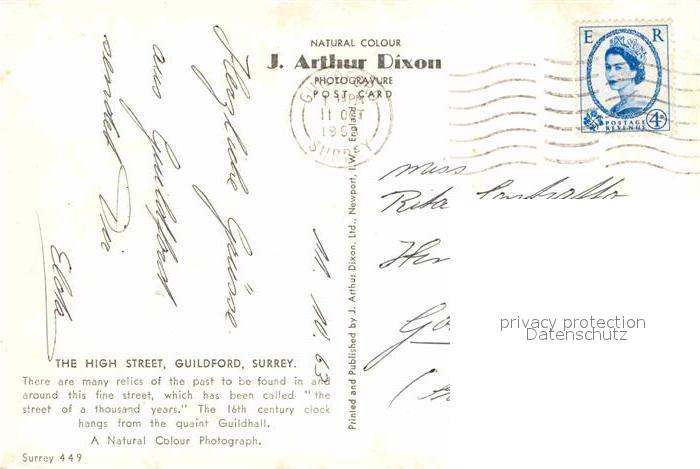 NATURAL COLOUR
J. Arthur Dixon
PHOTOGRAVURE
POST CARD
11 OCT
SURREY
E R
POSTAGE
REVENUE
4D
Herzliche Grüsse
aus Guildford
sendet Dir
M. N. 63
Printed and Published by J. Arthur Dixon, Ltd., Newport, I.W., England.
Miss
Rita
privacy protection
Datenschutz
THE HIGH STREET, GUILDFORD, SURREY.
There are many relics of the past to be found in and
around this fine street, which has been called "the
street of a thousand years." The 16th century clock
hangs from the quaint Guildhall.
A Natural Colour Photograph.
Surrey 449